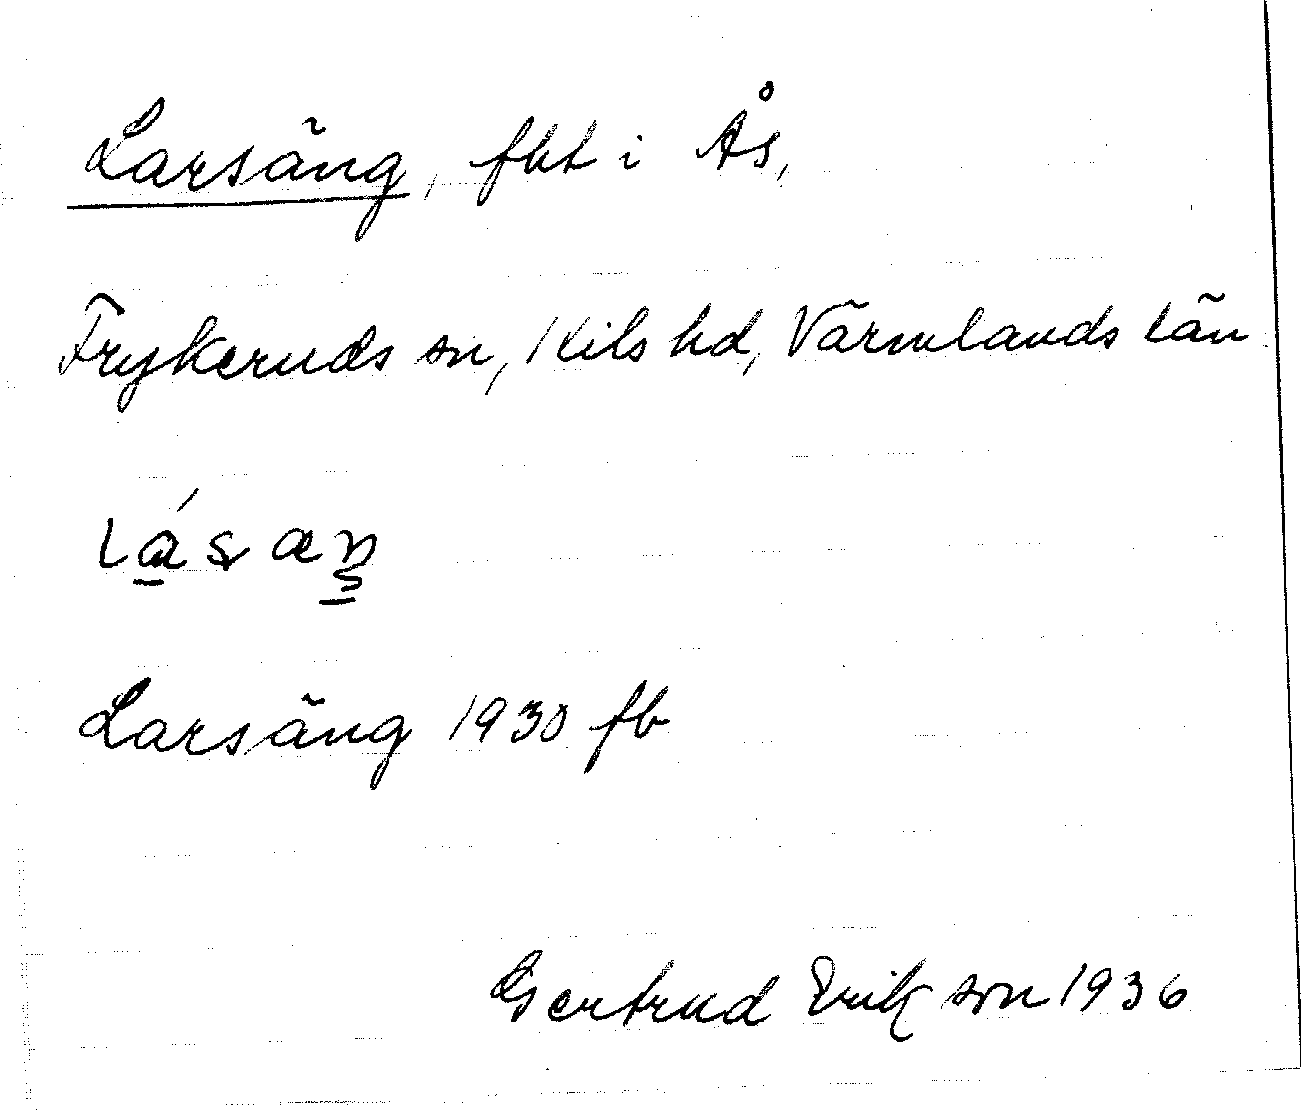 Larsäng, fbt i Ås,
Frykeruds sn, Kils hd, Värmlands län
Larsäng 1930 fb
Gertrud Erikson 1936